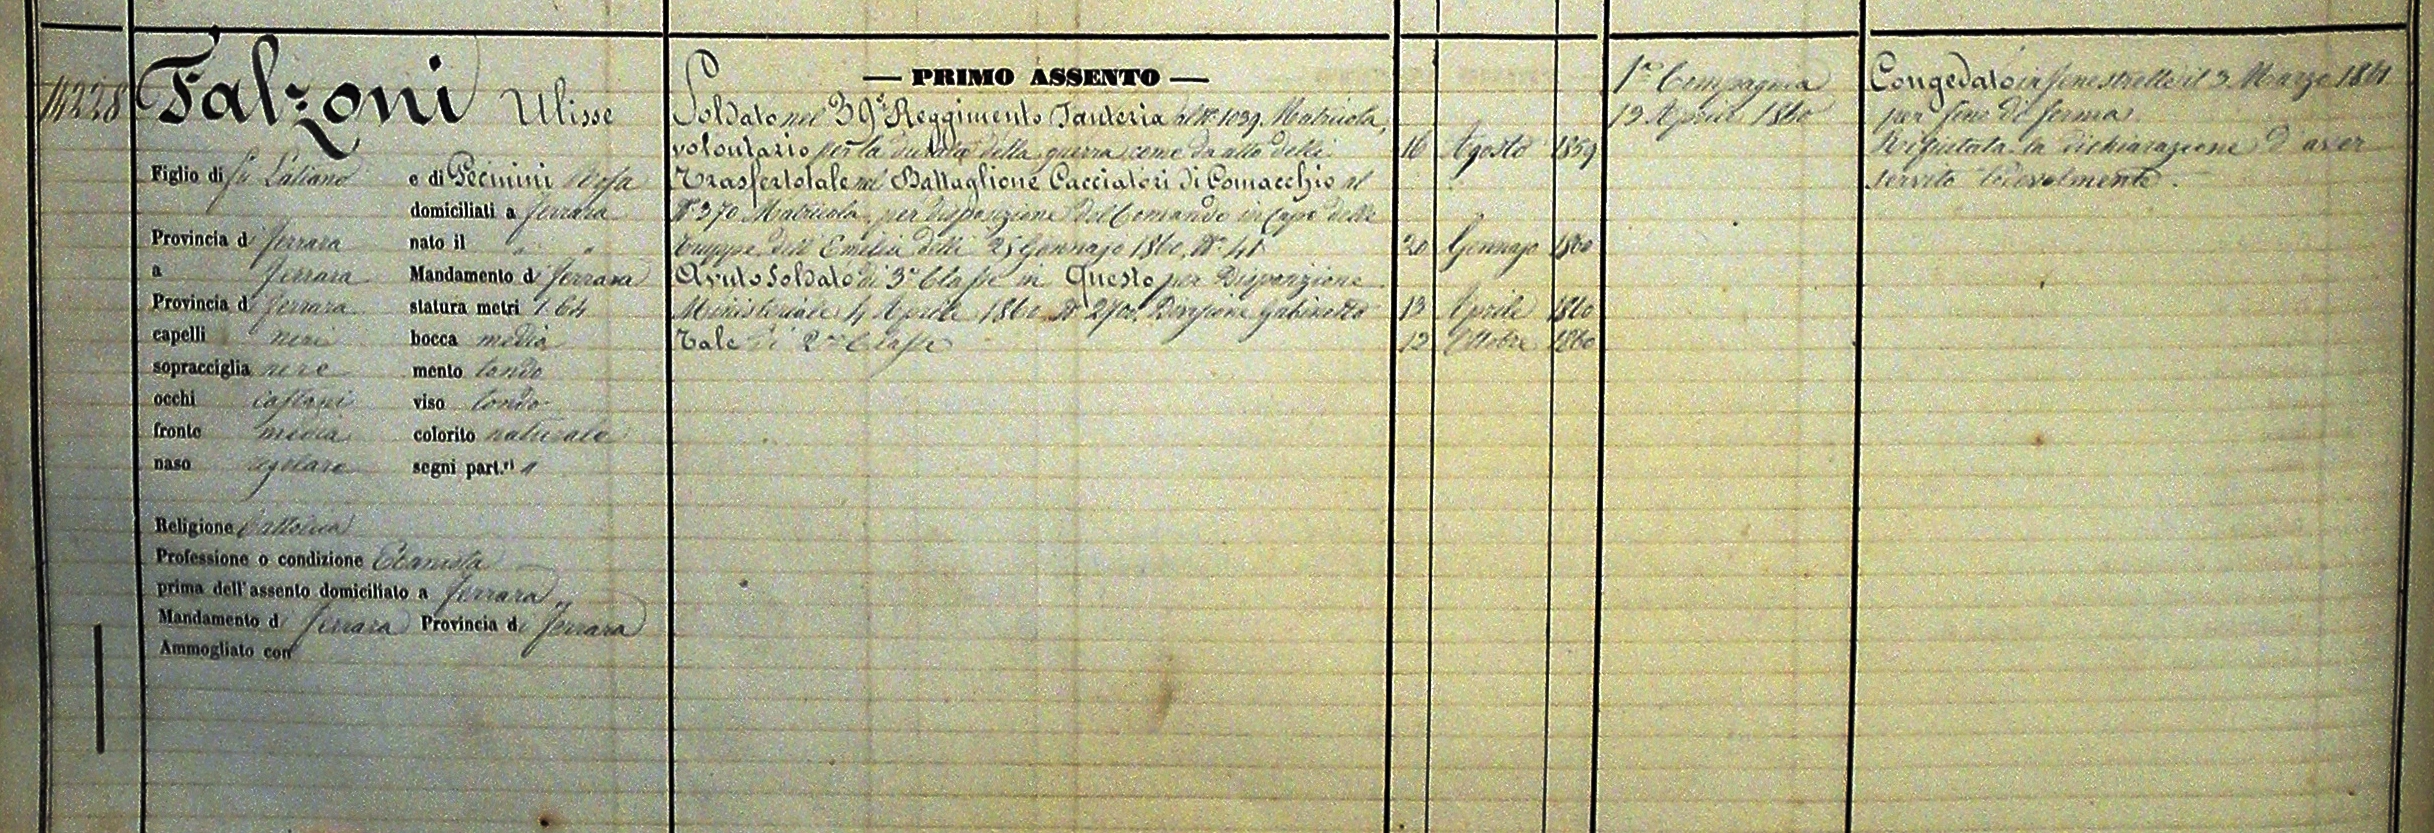 14228
Falzoni Ulisse
Figlio di fu Laliano e di Pecinini Rosa
domiciliati a Ferrara
Provincia di Ferrara nato il " "
a Ferrara Mandamento di Ferrara
Provincia di Ferrara statura metri 1.64
capelli neri bocca media
sopracciglia nere mento tondo
occhi castani viso tondo
fronte media colorito naturale
naso regolare segni part.ri "
Religione Cattolica
Professione o condizione Ebanista
prima dell'assento domiciliato a Ferrara
Mandamento di Ferrara Provincia di Ferrara
Ammogliato con
— PRIMO ASSENTO —
Soldato nel 39° Reggimento Fanteria al N° 1039 Matricola,
volontario per la durata della guerra come da atto delli 16 Agosto 1859
Trasferto tale nel Battaglione Cacciatori di Comacchio al
N° 370 Matricola, per disposizione del Comando in Capo delle
truppe dell'Emilia delli 25 Gennajo 1860, N° 41 20 Gennajo 1860
Avuto Soldato di 3a Classe in Questo per Disposizione
Ministeriale 4 Aprile 1860 N° 2700, Divisione Gabinetto 13 Aprile 1860
Tale di 2a Classe 12 Ottobre 1860
1a Compagnia
19 Aprile 1860
Congedato in Fenestrelle il 3 Marzo 1861
per fine di ferma.
Rifiutata la dichiarazione d'aver
servito lodevolmente.